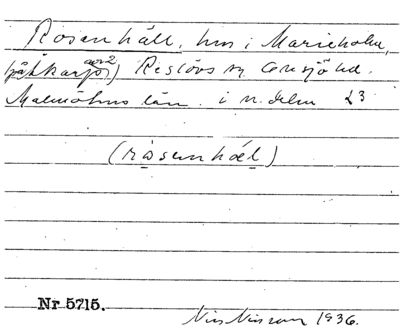 Rosenhäll, hus i Marieholm,
Reslövs sn, Onsjö hd.
Malmöhus län. i n. delen 23
(rosenhäl)
Nr 5715.
Nils Nilsson 1936.